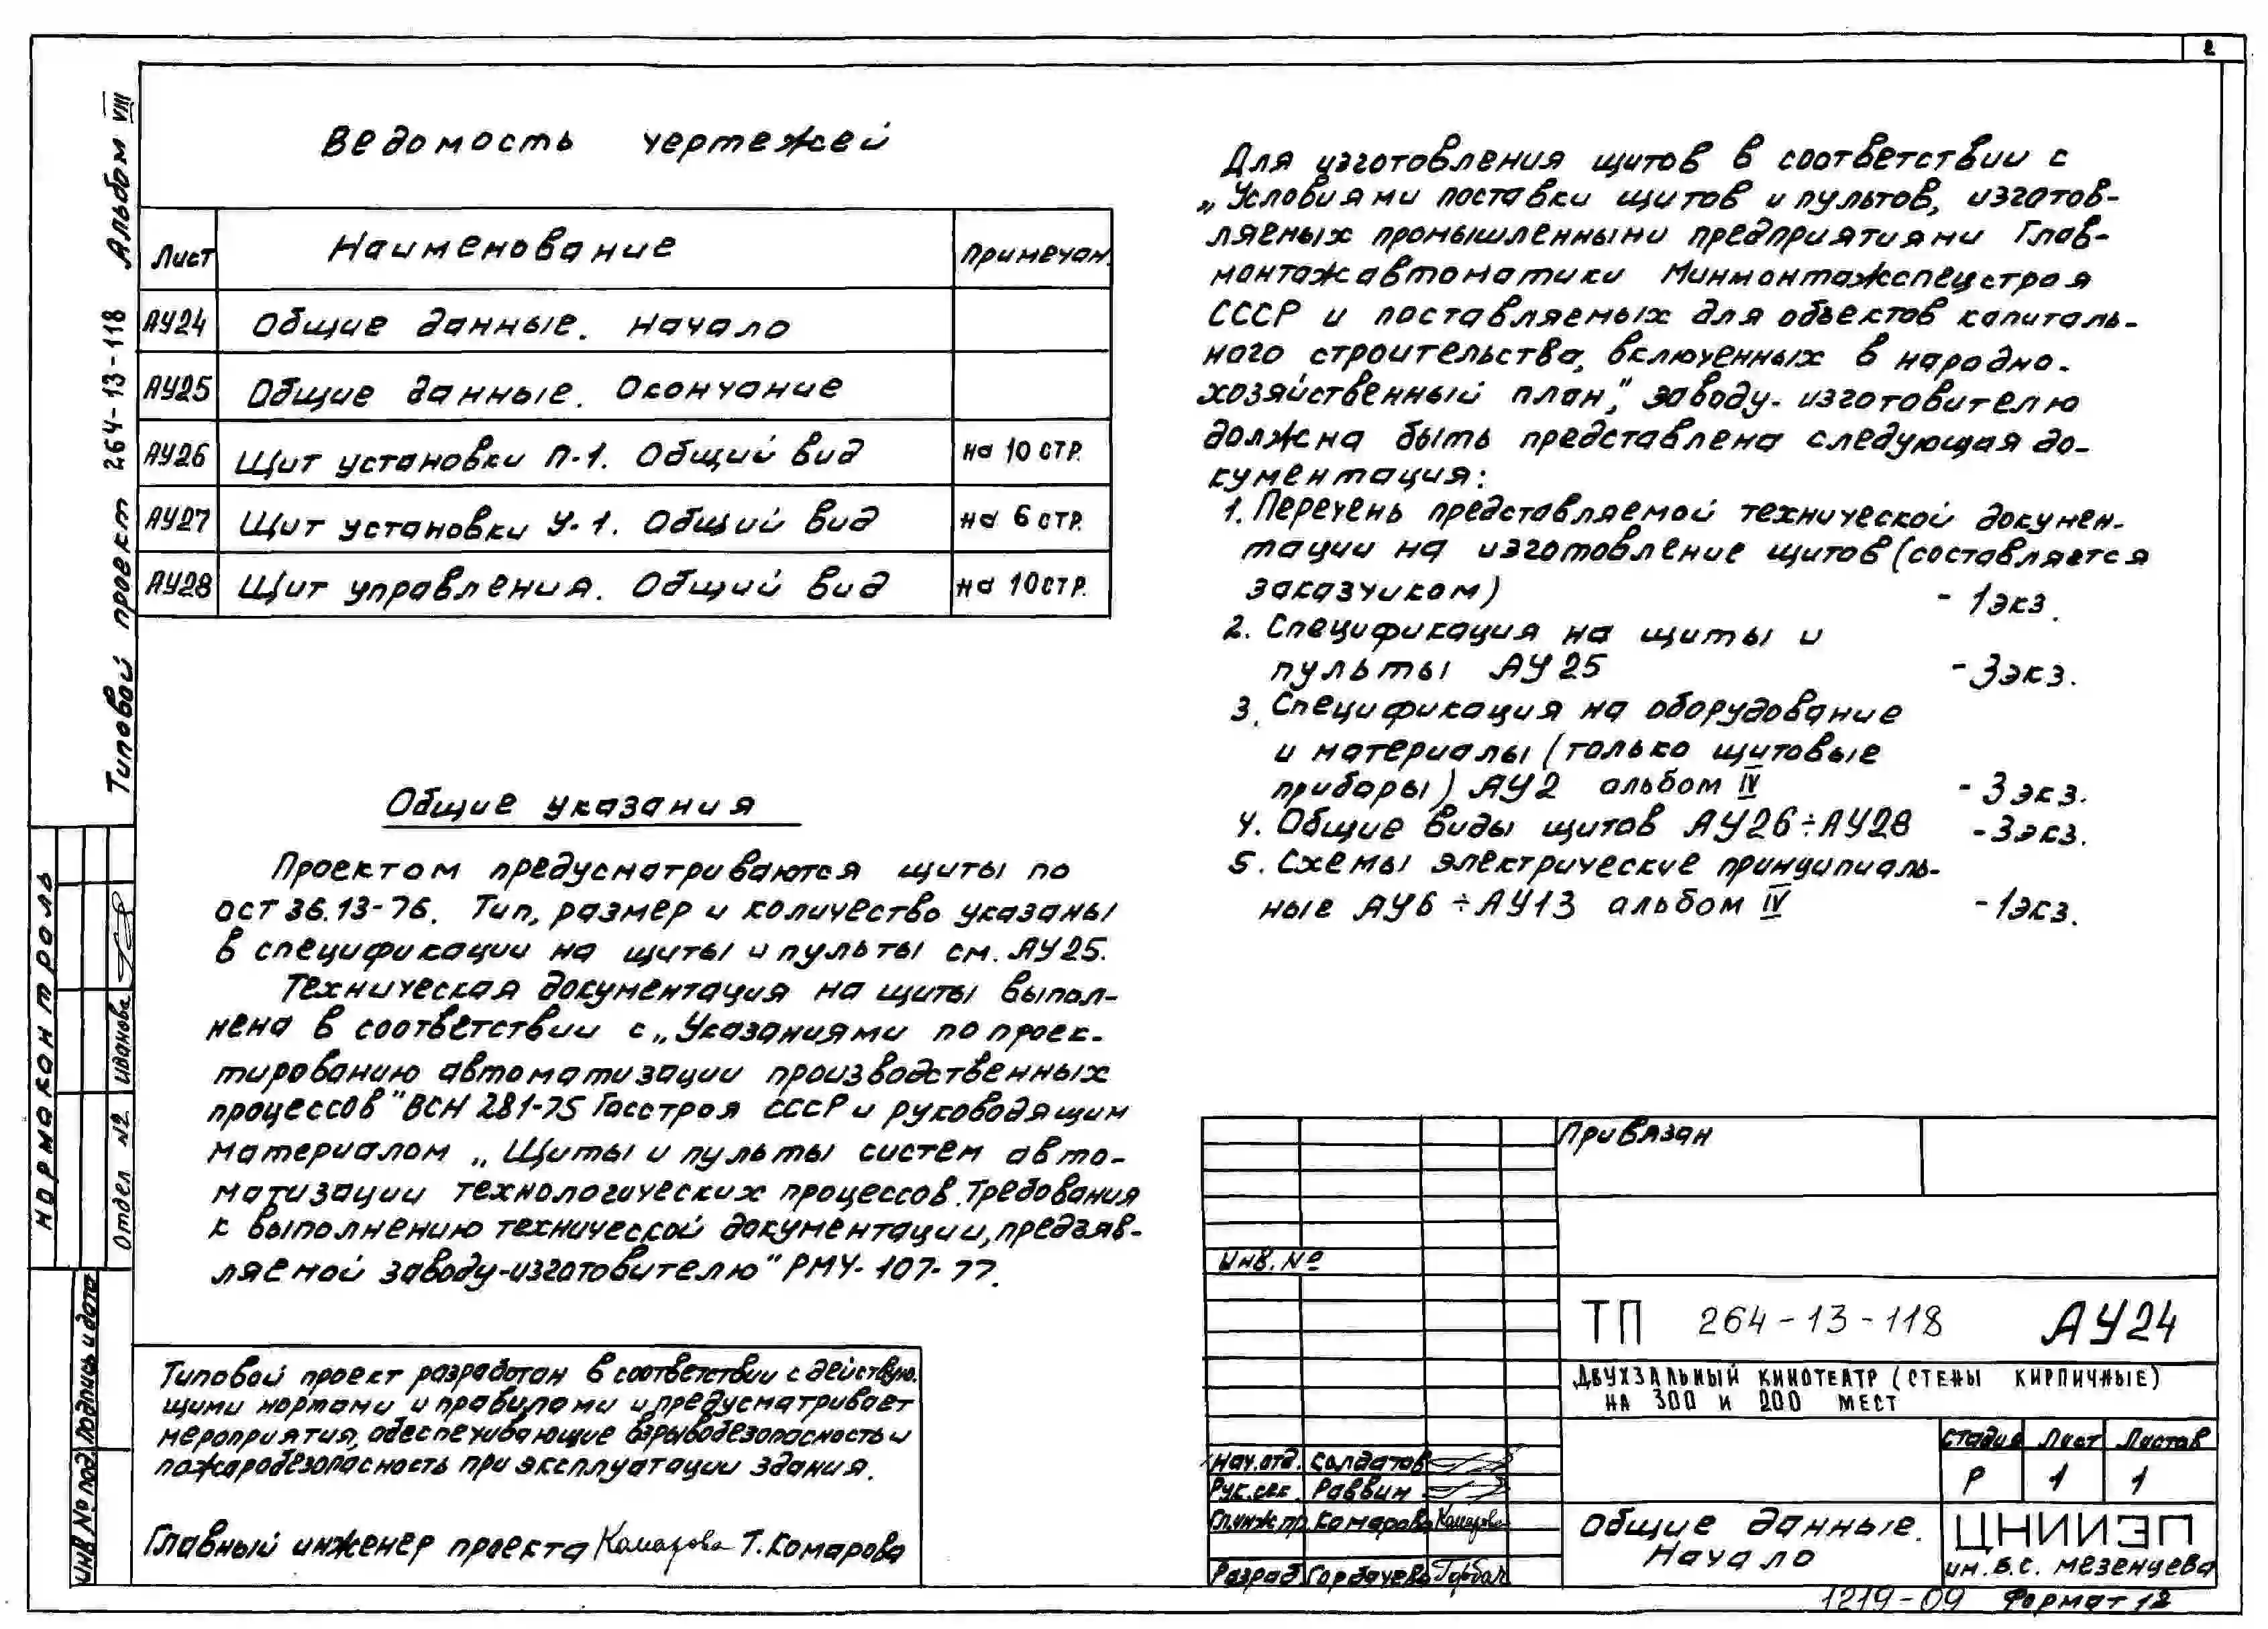 2
Типовой проект 264-13-118 Альбом VIII
Ведомость чертежей
Лист Наименование Примечан.
АУ24 Общие данные. Начало
АУ25 Общие данные. Окончание
АУ26 Щит установки П-1. Общий вид на 10 стр.
АУ27 Щит установки У-1. Общий вид на 6 стр.
АУ28 Щит управления. Общий вид на 10 стр.
Общие указания
Проектом предусматриваются щиты по
ОСТ 36.13-76. Тип, размер и количество указаны
в спецификации на щиты и пульты см. АУ25.
Техническая документация на щиты выпол-
нена в соответствии с „Указаниями по проек-
тированию автоматизации производственных
процессов" ВСН 281-75 Госстроя СССР и руководящим
материалом „Щиты и пульты систем авто-
матизации технологических процессов. Требования
к выполнению технической документации, предъяв-
ляемой заводу-изготовителю" РМ4-107-77.
Типовой проект разработан в соответствии с действую-
щими нормами и правилами и предусматривает
мероприятия, обеспечивающие взрывобезопасность и
пожаробезопасность при эксплуатации здания.
Главный инженер проекта Комарова Т. Комарова
Для изготовления щитов в соответствии с
„Условиями поставки щитов и пультов, изготов-
ляемых промышленными предприятиями Глав-
монтажавтоматики Минмонтажспецстроя
СССР и поставляемых для объектов капиталь-
ного строительства, включенных в народно-
хозяйственный план," заводу-изготовителю
должна быть представлена следующая до-
кументация:
1. Перечень представляемой технической докумен-
тации на изготовление щитов (составляется
заказчиком) - 1 экз.
2. Спецификация на щиты и
пульты АУ25 - 3 экз.
3. Спецификация на оборудование
и материалы (только щитовые
приборы) АУ2 альбом IV - 3 экз.
4. Общие виды щитов АУ26÷АУ28 - 3 экз.
5. Схемы электрические принципиаль-
ные АУ6÷АУ13 альбом IV - 1 экз.
Нормаконтроль
Отдел №2 Иванова
Инв № под. Подпись и дата
Привязан
Инв. №
ТП 264-13-118 АУ24
Двухзальный кинотеатр (стены кирпичные)
на 300 и 200 мест
Стадия Лист Листов
Р 1 1
Нач. отд. Солдатов
Рук. сек. Раввин
Гл. инж. пр. Комарова Комарова
Разраб. Горбачева Горбач
Общие данные.
Начало
ЦНИИЭП
им. Б.С. Мезенцева
1219-09 Формат 12